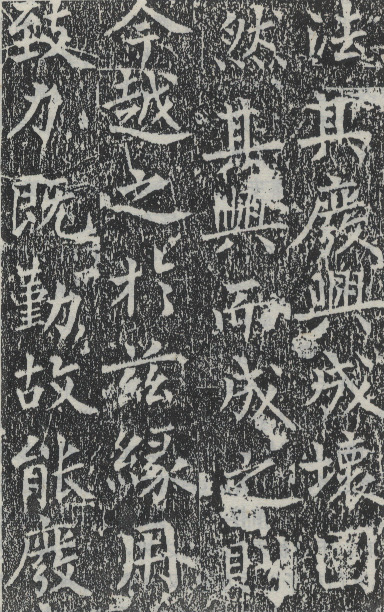 法其廢興成壞固
然其興而成之則
今越之於茲緣用
致力既勤故能廢